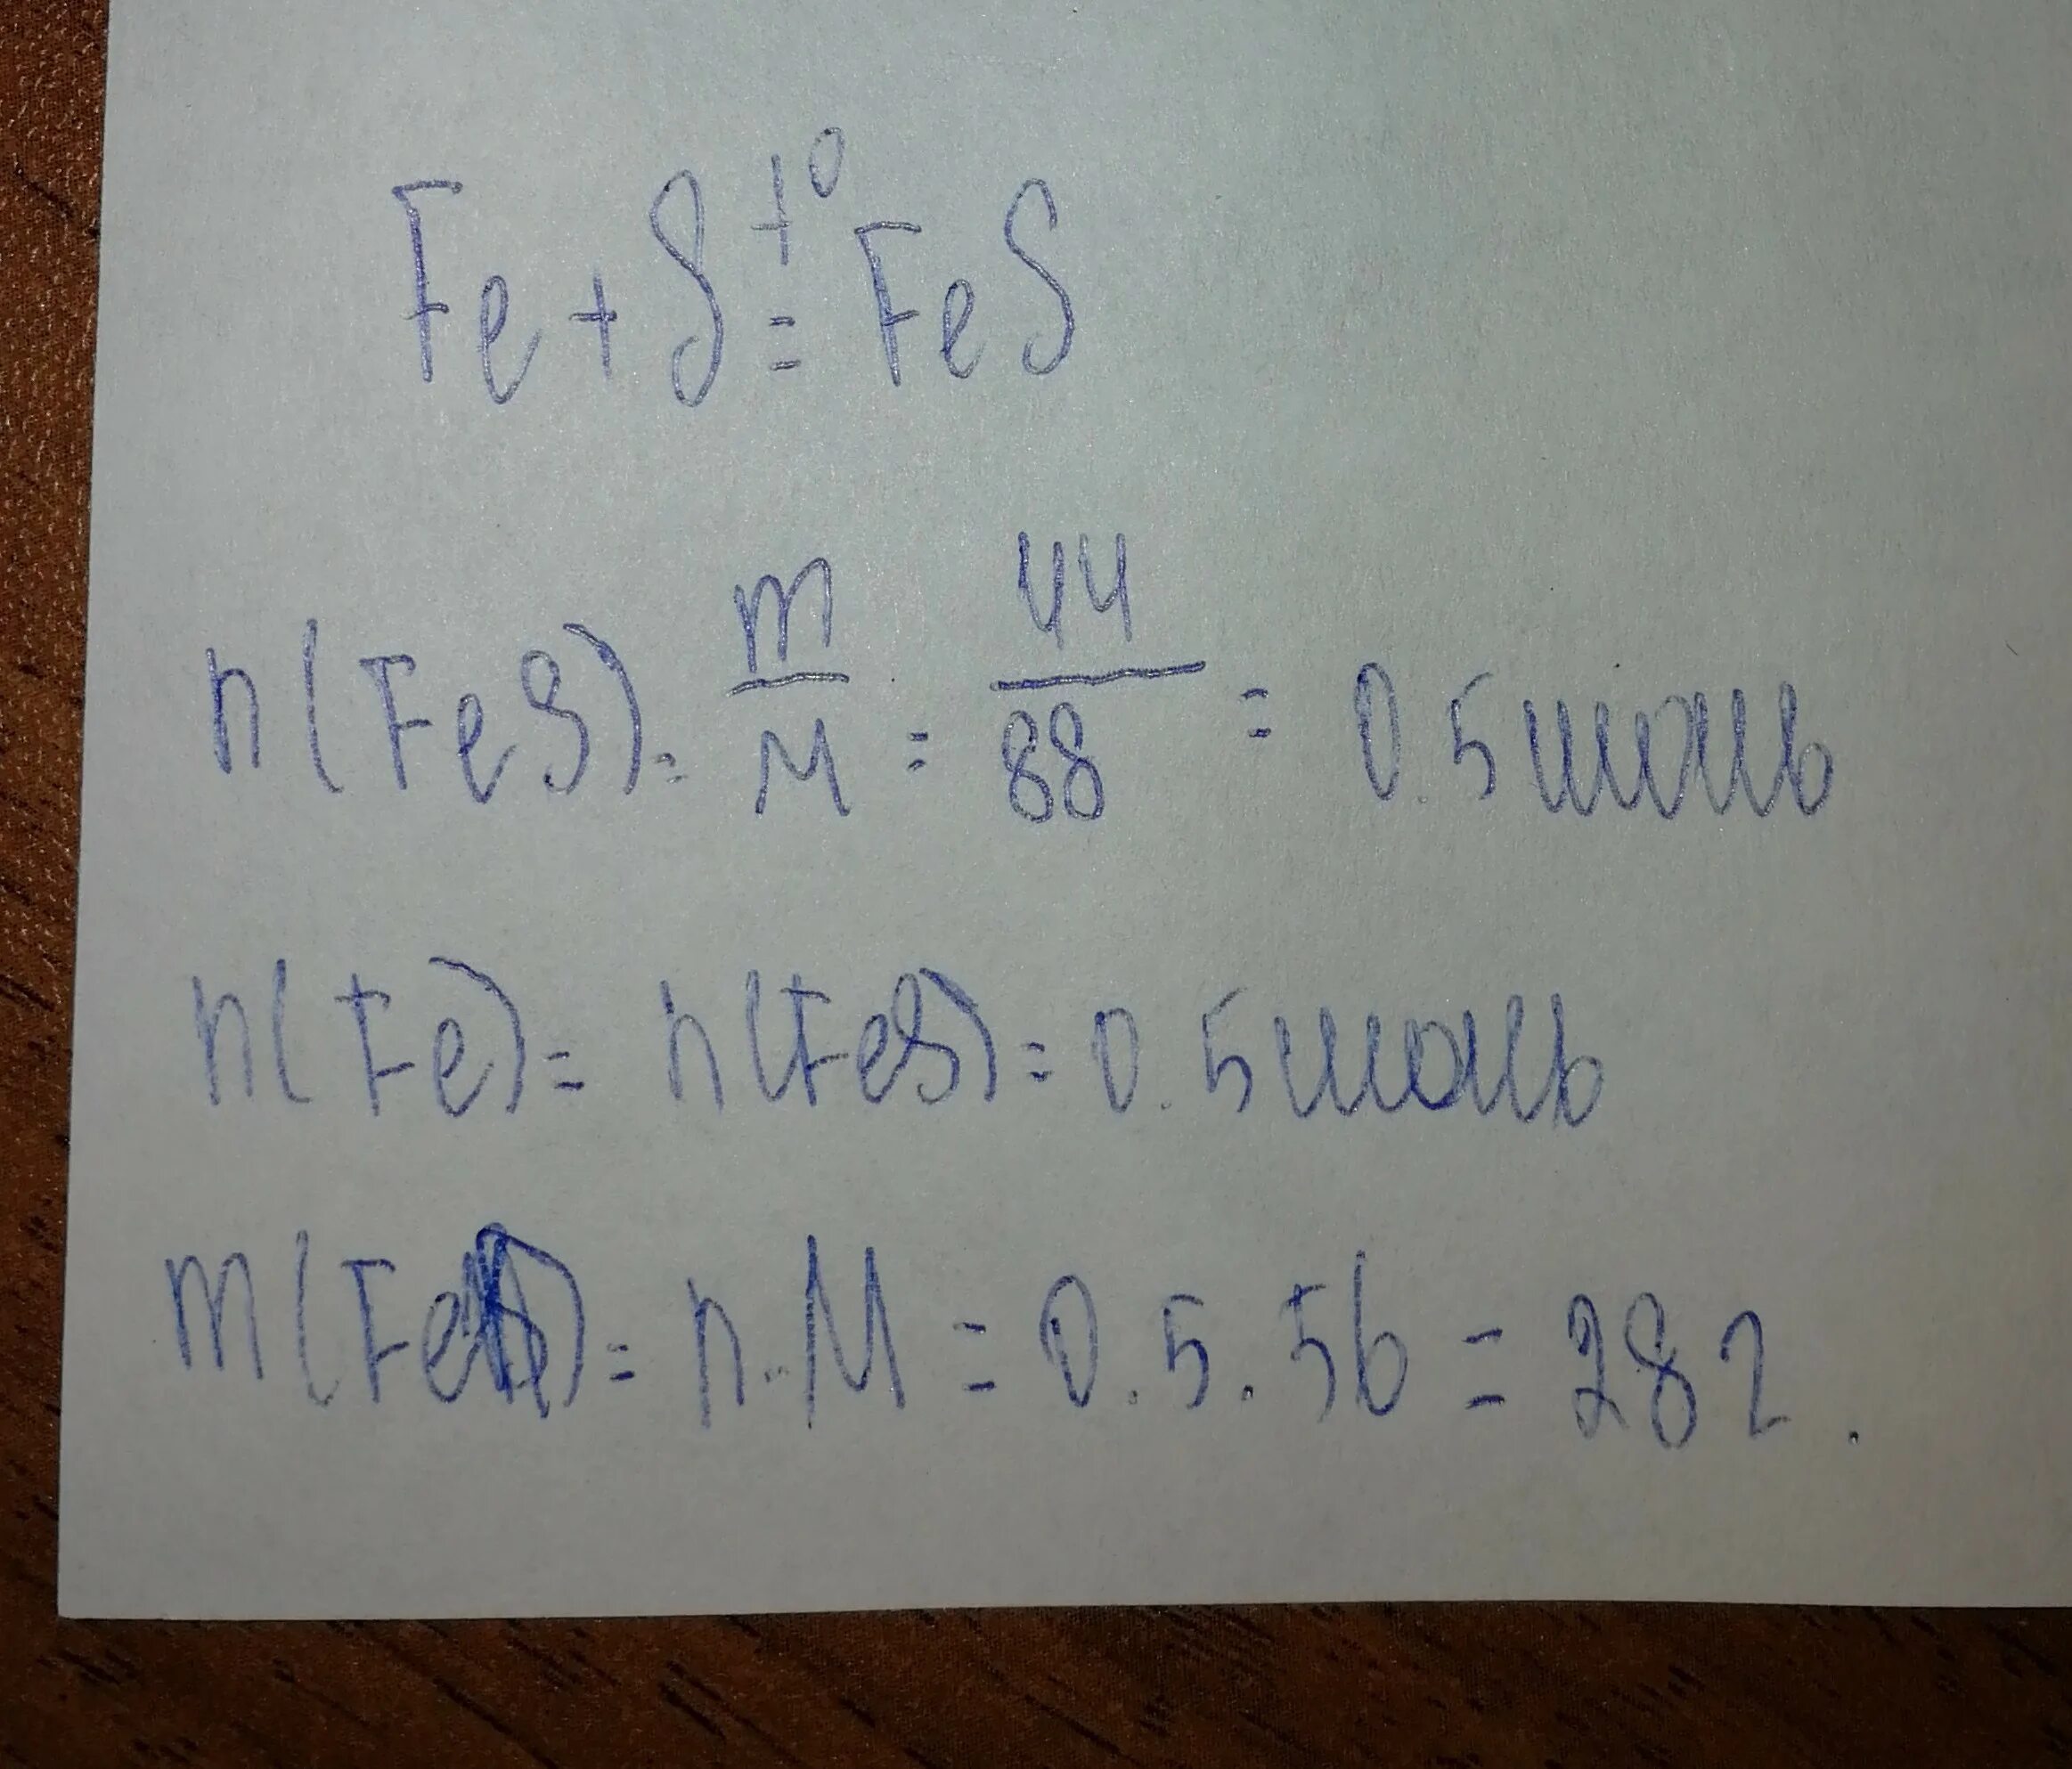 Fe + S t° = FeS
n(FeS) = m/M = 44/88 = 0.5 моль
n(Fe) = n(FeS) = 0.5 моль
m(Fe) = n·M = 0.5·56 = 28г.